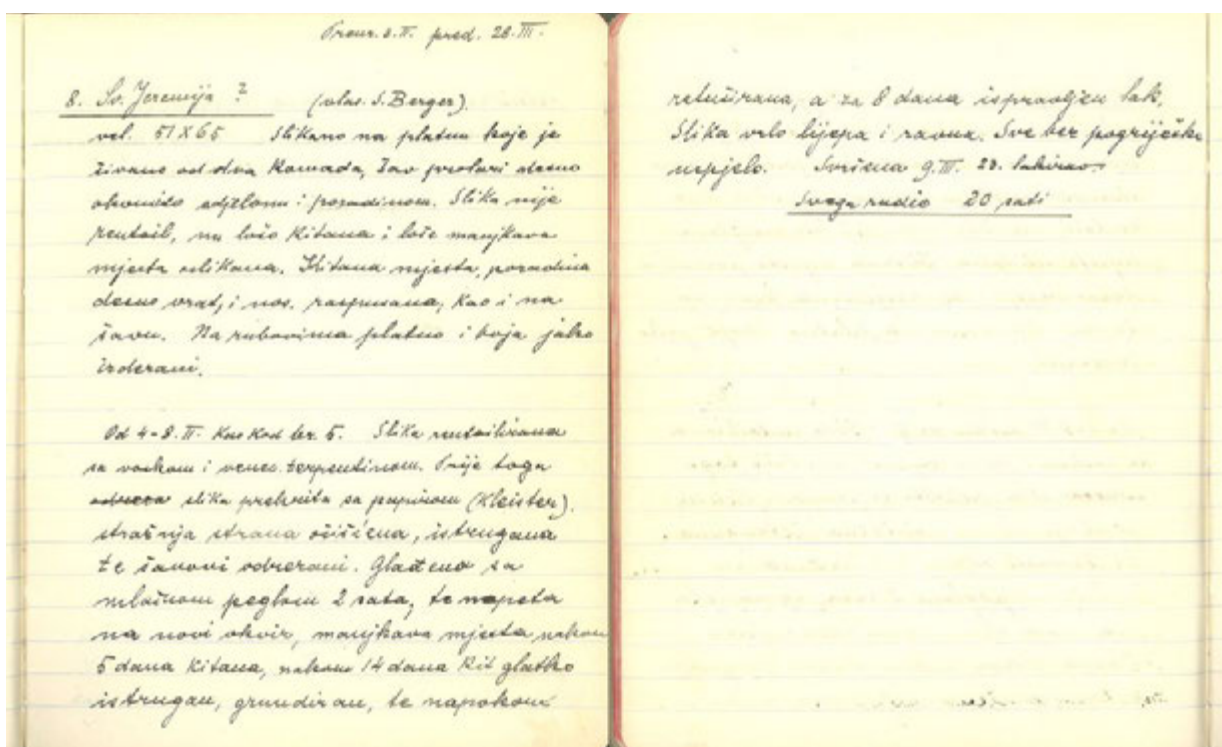 Preuz. 2. II. pred. 28. III.
8. Sv. Jeremija ? (vlas. S. Berger)
vel. 51 X 65 Slikano na platnu koje je
šivano od dva komada, šav prolazi desno
okomito i pozadinom. Slika nije
rentoil, no loše kitana i loše manjkava
mjesta slikana. Kitana mjesta, pozadina
desno vrat, i nos. raspucana, kao i na
šavu. Na rubovima platno i boja jako
izderani.
Od 4-8. II. kao kod br. 5. Slika rentoilirana
sa voskom i venec. terpentinom. Prije toga
slika prekrita sa papirom (Kleister).
stražnja strana očišćena, istrugana
te šavovi odrezani. Glađeno sa
mlačnom peglom 2 sata, te napeta
na novi okvir, manjkava mjesta nakon
5 dana kitana, nakon 14 dana kit glatko
istrugan, grundiran, te napokon
retuširana, a za 8 dana ispravljen lak.
Slika vrlo lijepa i ravna. Sve bez pogriješke
uspjelo. Svršena 9. III. 28. lakirao.
Svega radio 20 sati